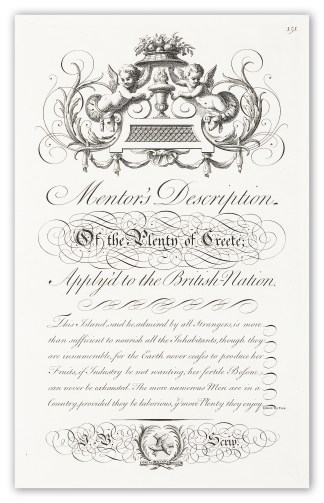 151
Mentor's Description.
Of the Plenty of Creete,
Apply'd to the British Nation.
This Island, said he, admired by all Strangers, is more
than sufficient to nourish all the Inhabitants, though they
are innumerable, for the Earth never ceases to produce her
Fruits, if Industry be not wanting, her fertile Bosom
can never be exhausted. The more numerous Men are in a
Country, provided they be laborious, y.^e more Plenty they enjoy.
J. B. Scrip.